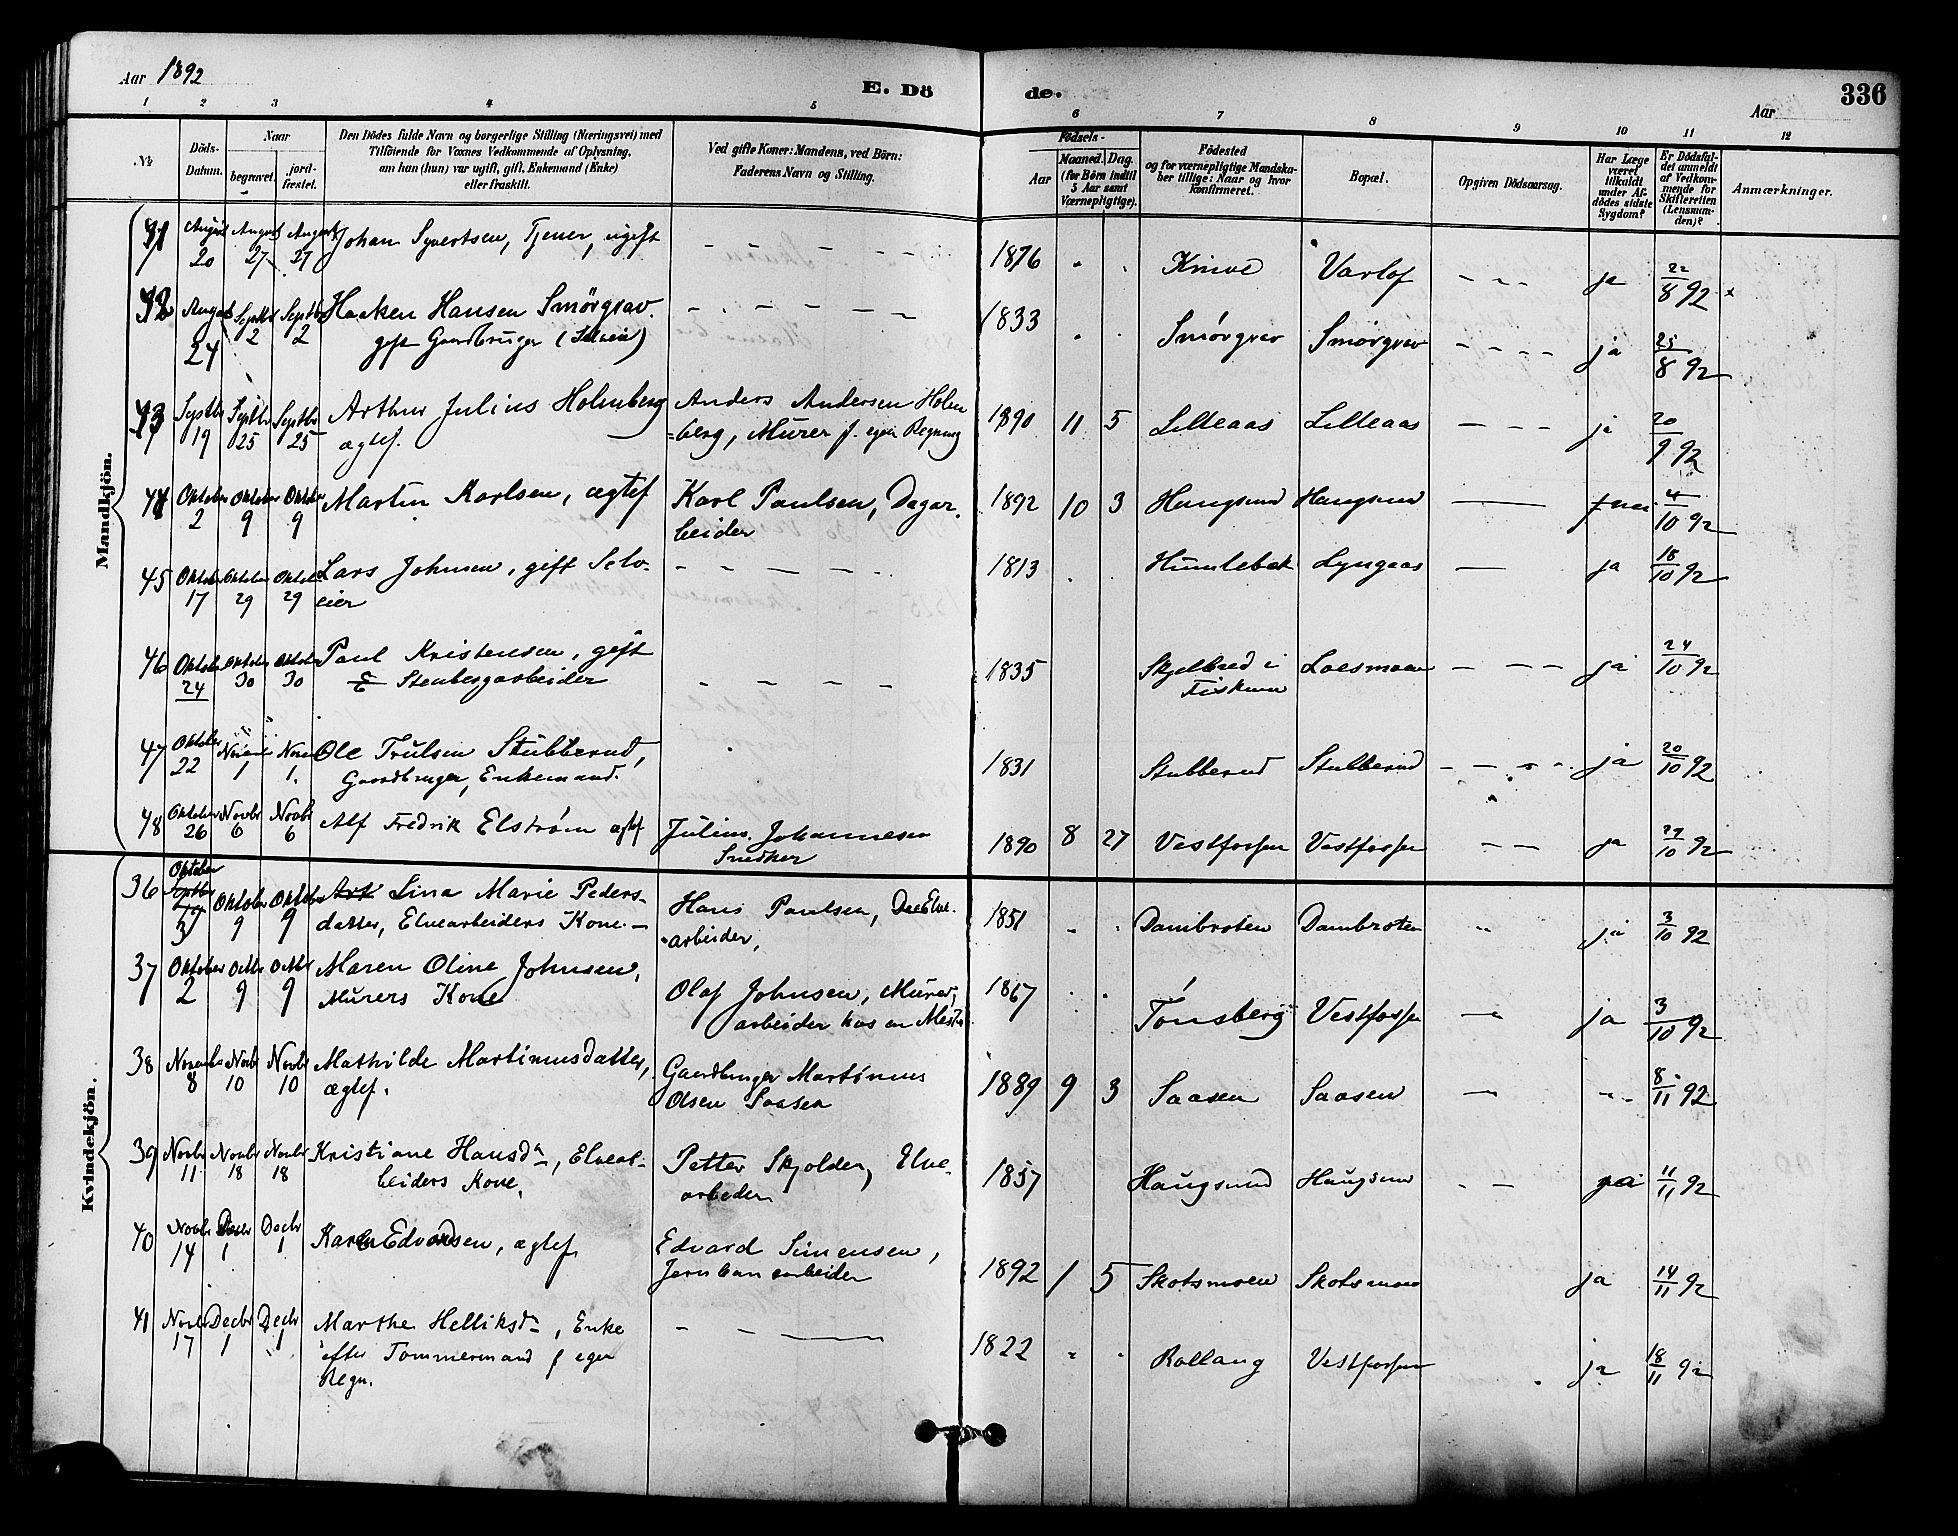 Aar 1892
E. Dö
de.
Aar
336
1 2 3 4 5 6 7 8 9 10 11 12
No
Döds-
Datum.
Naar
begravet.
jord-
fæstet.
Den Dödes fulde Navn og borgerlige Stilling (Næringsvei) med
Tilföiende for Voxnes Vedkommende af Oplysning,
om han (hun) var ugift, gift, Enkemand (Enke)
eller fraskilt.
Ved gifte Koner: Mandens, ved Börn:
Faderens Navn og Stilling.
Födsels-
Aar
Maaned. Dag.
(for Börn indtil
5 Aar samt
Værnepligtige).
Födested
og for værnepligtige Mandska-
ber tillige: Naar og hvor
konfirmeret.
Bopæl.
Opgiven Dödsaarsag.
Har Læge
været
tilkaldt
under Af-
dödes sidste
Sygdom?
Er Dödsfal-
det anmeldt
af Vedkom-
mende for
Skifteretten
(Lensman-
den)?
Anmærkninger.
Mandkjön.
41 August 20 August 27 August 27 Johan Syvertsen, Tjener, ugift – – – – – 1876 Varlof – – – ja 22/8 92 x
42 August 24 Septbr 2 Septbr 2 Haaken Hansen Smörgrav.
gift Gaardbruger (Selveier) – – – – – 1833 Smörgrav Smörgrav – – – – ja 25/8 92
43 Septbr 19 Septbr 25 Septbr 25 Arthur Julius Holmberg
ægtef.
Anders Andersen Holm
=berg, Murer f. egen Regning 1890 11 5 Lilleaas Lilleaas – – – ja 20/9 92
44 Oktober 2 Oktober 9 Oktober 9 Martin Karlsen, ægtef
Karl Paulsen, Dagar.
beider 1892 10 3 Haugsund Haugsund — nei 4/10 92
45 Oktober 17 Oktober 29 Oktober 29 Lars Johnsen, gift Selv-
eier – – – – – 1813 Humlebek Lyngaas — ja 18/10 92
46 Oktober 24 Oktober 30 Oktober 30 Paul Kristensen, gift
Stenbergarbeider – – – – 1835 Skjelbred i
Fiskum Loesmoen – – – ja 24/10 92
47 Oktober 22 Novem 1 Novem 1. Ole Trulsen Stubberud,
Gaardbruger, Enkemand. 1831 Stubberud Stubberud – – – – ja 20/10 92
48 Oktober 26 Novbr 6 Novbr 6 Alf Fredrik Elström ægtef
Julius Johannesen
Snedker 1890 8 27 Vestfossen Vestfossen – – ja 27/10 92
Kvindekjön.
36 Oktober 3 Oktober 9 Oktober 9 Lina Marie Peders-
datter, Elvearbeiders Kone. —
Hans Paulsen, Elve-
arbeider, 1851 Dambroten Dambroten " ja 3/10 92
37 Oktober 2 Octbr 9 Octbr 9 Maren Oline Johnsen,
Murers Kone
Olaf Johnsen, Murer,
arbeider hos en Mester 1867 Tönsberg Vestfossen — ja 3/10 92
38 Novembr 8 Novbr 10 Novbr 10 Mathilde Martinusdatter,
ægtef.
Gaardbruger Martinus
Olsen Saasen 1889 9 3 Saasen Saasen — – 8/11 92
39 Novbr 11 Novbr 18 Novbr 18 Kristiane Hansdr, Elvear-
beiders Kone,
Petter Skjolden, Elve-
arbeder 1857 Haugsund Haugsund – – ja 11/11 92
40 Novbr 14 Decbr 1 Decbr 1 Karen Edvardsen, ægtef,
Edvard Simensen,
Jernbanearbeider 1892 1 5 Skotsmoen Skotsmoen ja 14/11 92
41 Novbr 17 Decbr 1 Decbr 1 Marthe Helliksdr, Enke
efter Tömmermand f egen
Regn. – – — 1822 " " Kollaug Vestfossen ja 18/11 92